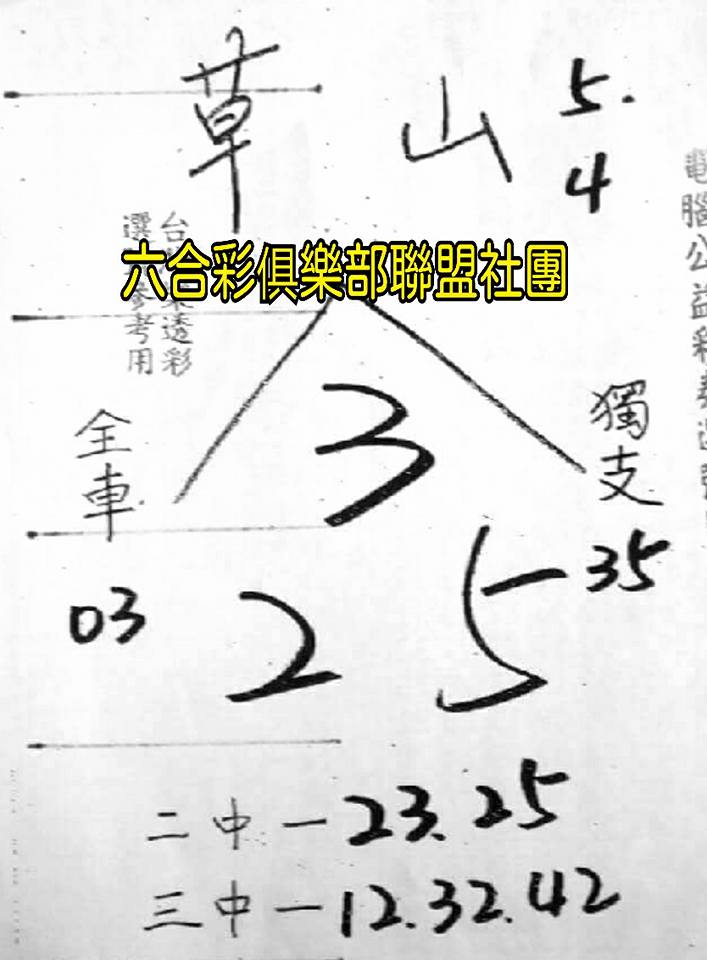 草山 5.
4
六合彩俱樂部聯盟社團
透彩
參考用
電腦公益彩
3
全車
獨支
03 2 5 35
二中一23.25
三中一12.32.42